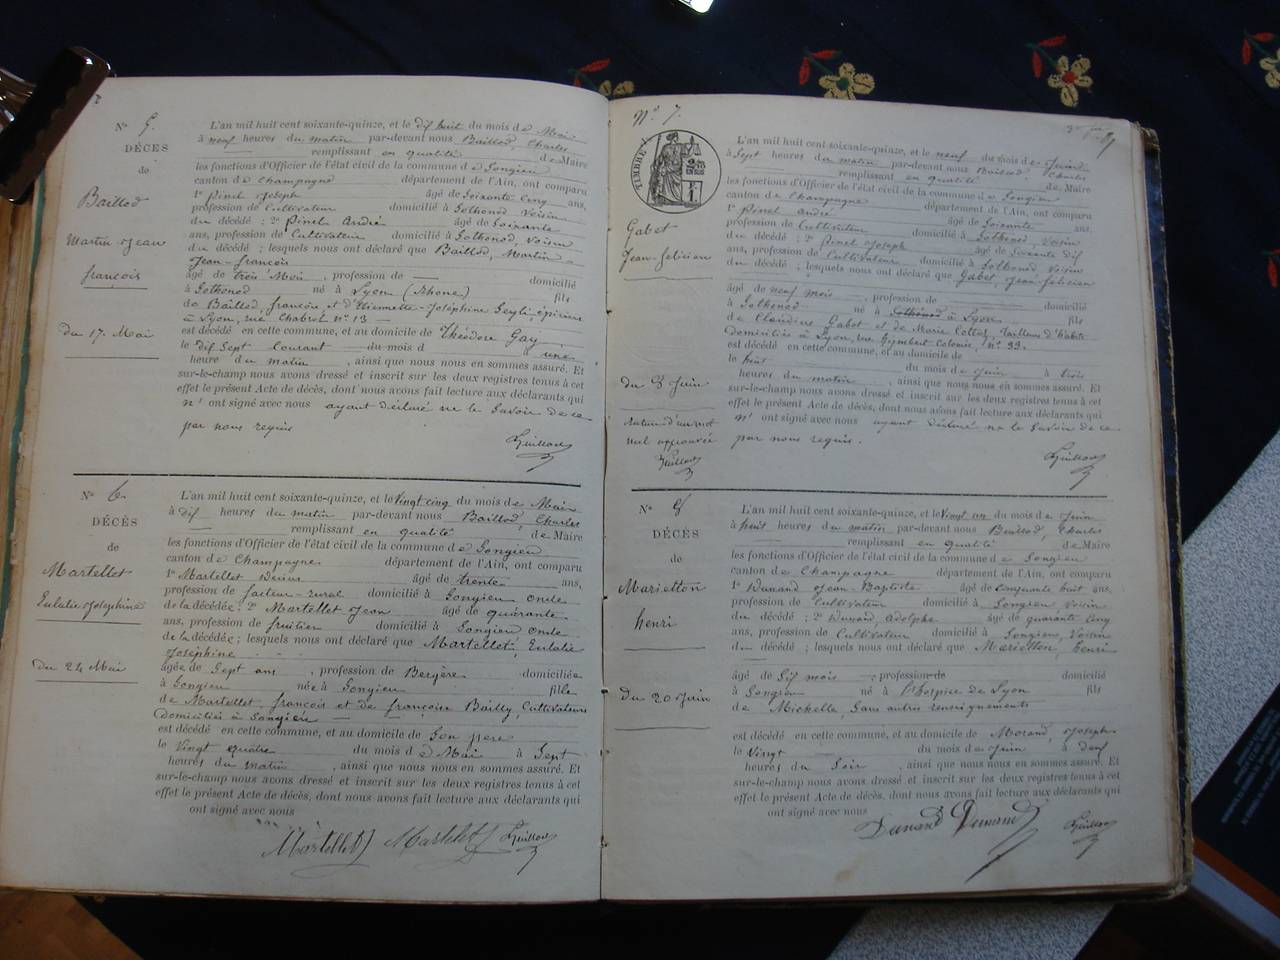 N° 5.
DÉCÈS
de
Baillod
Martin Jean
françois
du 17. Mai
L'an mil huit cent soixante-quinze, et le dix huit du mois de Mai
à neuf heures du matin par-devant nous Baillod, Charles
remplissant en qualité de Maire
les fonctions d'Officier de l'état civil de la commune de Songieu
canton de Champagne département de l'Ain, ont comparu
1° Pinel Joseph âgé de Soixante cinq ans,
profession de Cultivateur domicilié à Sothonod Voisin
du décédé : 2° Pinel André âgé de Soixante
ans, profession de Cultivateur domicilié à Sothonod, Voisin
du décédé ; lesquels nous ont déclaré que Baillod, Martin
Jean-françois
âgé de trois Mois, profession de domicilié
à Sothonod né à Lyon (Rhone) fils
de Baillod, françois et d'Etiennette-Joséphine épiciers
à Lyon, rue Chabrol n° 13
est décédé en cette commune, et au domicile de Théodore Gay
le dix Sept courant du mois d à une
heure du matin, ainsi que nous nous en sommes assuré. Et
sur-le-champ nous avons dressé et inscrit sur les deux registres tenus à cet
effet le présent Acte de décès, dont nous avons fait lecture aux déclarants qui
n' ont signé avec nous ayant déclaré ne le Savoir de ce
par nous requis
N° 6.
DÉCÈS
de
Martellet
Eulalie Joséphine
du 24 Mai
L'an mil huit cent soixante-quinze, et le Vingt cinq du mois de Mai
à dix heures du matin par-devant nous Baillod, Charles
remplissant en qualité de Maire
les fonctions d'Officier de l'état civil de la commune de Songieu
canton de Champagne département de l'Ain, ont comparu
1° Martellet âgé de trente ans,
profession de facteur-rural domicilié à Songieu oncle
de la décédée : 2° Martellet Jean âgé de quarante
ans, profession de fruitier domicilié à Songieu oncle
de la décédée ; lesquels nous ont déclaré que Martellet, Eulalie
Joséphine
âgée de Sept ans, profession de Bergère domiciliée
à Songieu née à Songieu fille
de Martellet, françois et de françoise Bailly, Cultivateurs
Domiciliés à Songieu
est décédé en cette commune, et au domicile de Son père
le Vingt quatre du mois de Mai à Sept
heures du matin, ainsi que nous nous en sommes assuré. Et
sur-le-champ nous avons dressé et inscrit sur les deux registres tenus à cet
effet le présent Acte de décès, dont nous avons fait lecture aux déclarants qui
ont signé avec nous
Martellet Martelet
N° 7.
TIMBRE
Gabet
Jean-felicien
du 8 Juin
rature d'un mot
nul approuvée
L'an mil huit cent soixante-quinze, et le neuf du mois de Juin
à Sept heures du matin par-devant nous Baillod, Charles
remplissant en qualité de Maire
les fonctions d'Officier de l'état civil de la commune de Songieu
canton de Champagne département de l'Ain, ont comparu
1° Pinel andré âgé de Soixante ans,
profession de Cultivateur domicilié à Sothonod Voisin
du décédé : 2° Pinel Joseph âgé de Soixante dix
ans, profession de Cultivateur domicilié à Sothonod, Voisin
du décédé ; lesquels nous ont déclaré que Gabet, Jean-felicien
âgé de neuf mois, profession de domicilié
à Sothonod né à Sothonod à Lyon fils
de Claudius Gabet et de Marie Cottaz, Tailleurs d'habits
Domiciliés à Lyon, rue n° 33.
est décédé en cette commune, et au domicile de
le huit du mois de Juin à trois
heures du matin, ainsi que nous nous en sommes assuré. Et
sur-le-champ nous avons dressé et inscrit sur les deux registres tenus à cet
effet le présent Acte de décès, dont nous avons fait lecture aux déclarants qui
n' ont signé avec nous ayant déclaré ne le Savoir de ce
par nous requis.
N° 8
DÉCÈS
de
Marietton
henri
Du 20 Juin
L'an mil huit cent soixante-quinze, et le Vingt un du mois de Juin
à huit heures du matin par-devant nous Baillod, Charles
remplissant en qualité de Maire
les fonctions d'Officier de l'état civil de la commune de Songieu
canton de Champagne département de l'Ain, ont comparu
1° Dunand Jean-Baptiste âgé de Cinquante huit ans,
profession de Cultivateur domicilié à Songieu, Voisin
du décédé : 2° Dunand, Adolphe âgé de quarante cinq
ans, profession de Cultivateur domicilié à Songieu, Voisin
du décédé ; lesquels nous ont déclaré que Marietton, henri
âgé de Six mois, profession de domicilié
à Songieu né à l'hospice de Lyon fils
de Michelle, Sans autres renseignements
est décédé en cette commune, et au domicile de Morand, Joseph
le Vingt du mois de Juin à deux
heures du Soir, ainsi que nous nous en sommes assuré. Et
sur-le-champ nous avons dressé et inscrit sur les deux registres tenus à cet
effet le présent Acte de décès, dont nous avons fait lecture aux déclarants qui
ont signé avec nous
Dunand Dunand